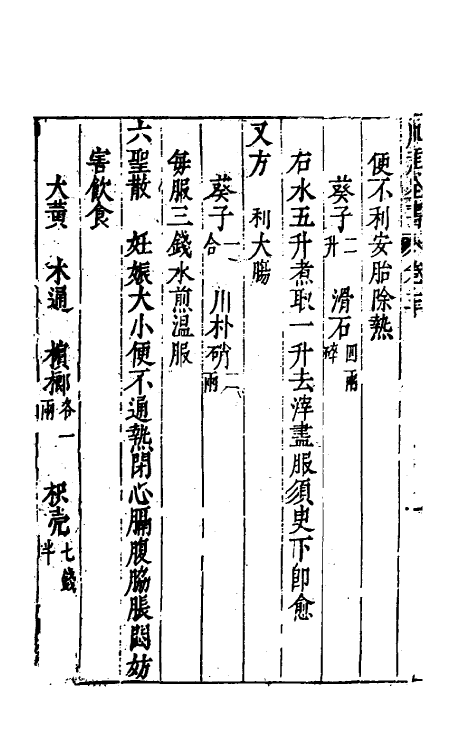 便不利安胎除熱
葵子二升　滑石四兩碎
右水五升煮取一升去滓盡服須臾下即愈
又方　利大腸
葵子一合　川朴硝二兩
每服三錢水煎溫服
六聖散　妊娠大小便不通熱閉心膈腹脇脹悶妨
害飲食
大黃　木通　檳榔各一兩　枳壳七錢半